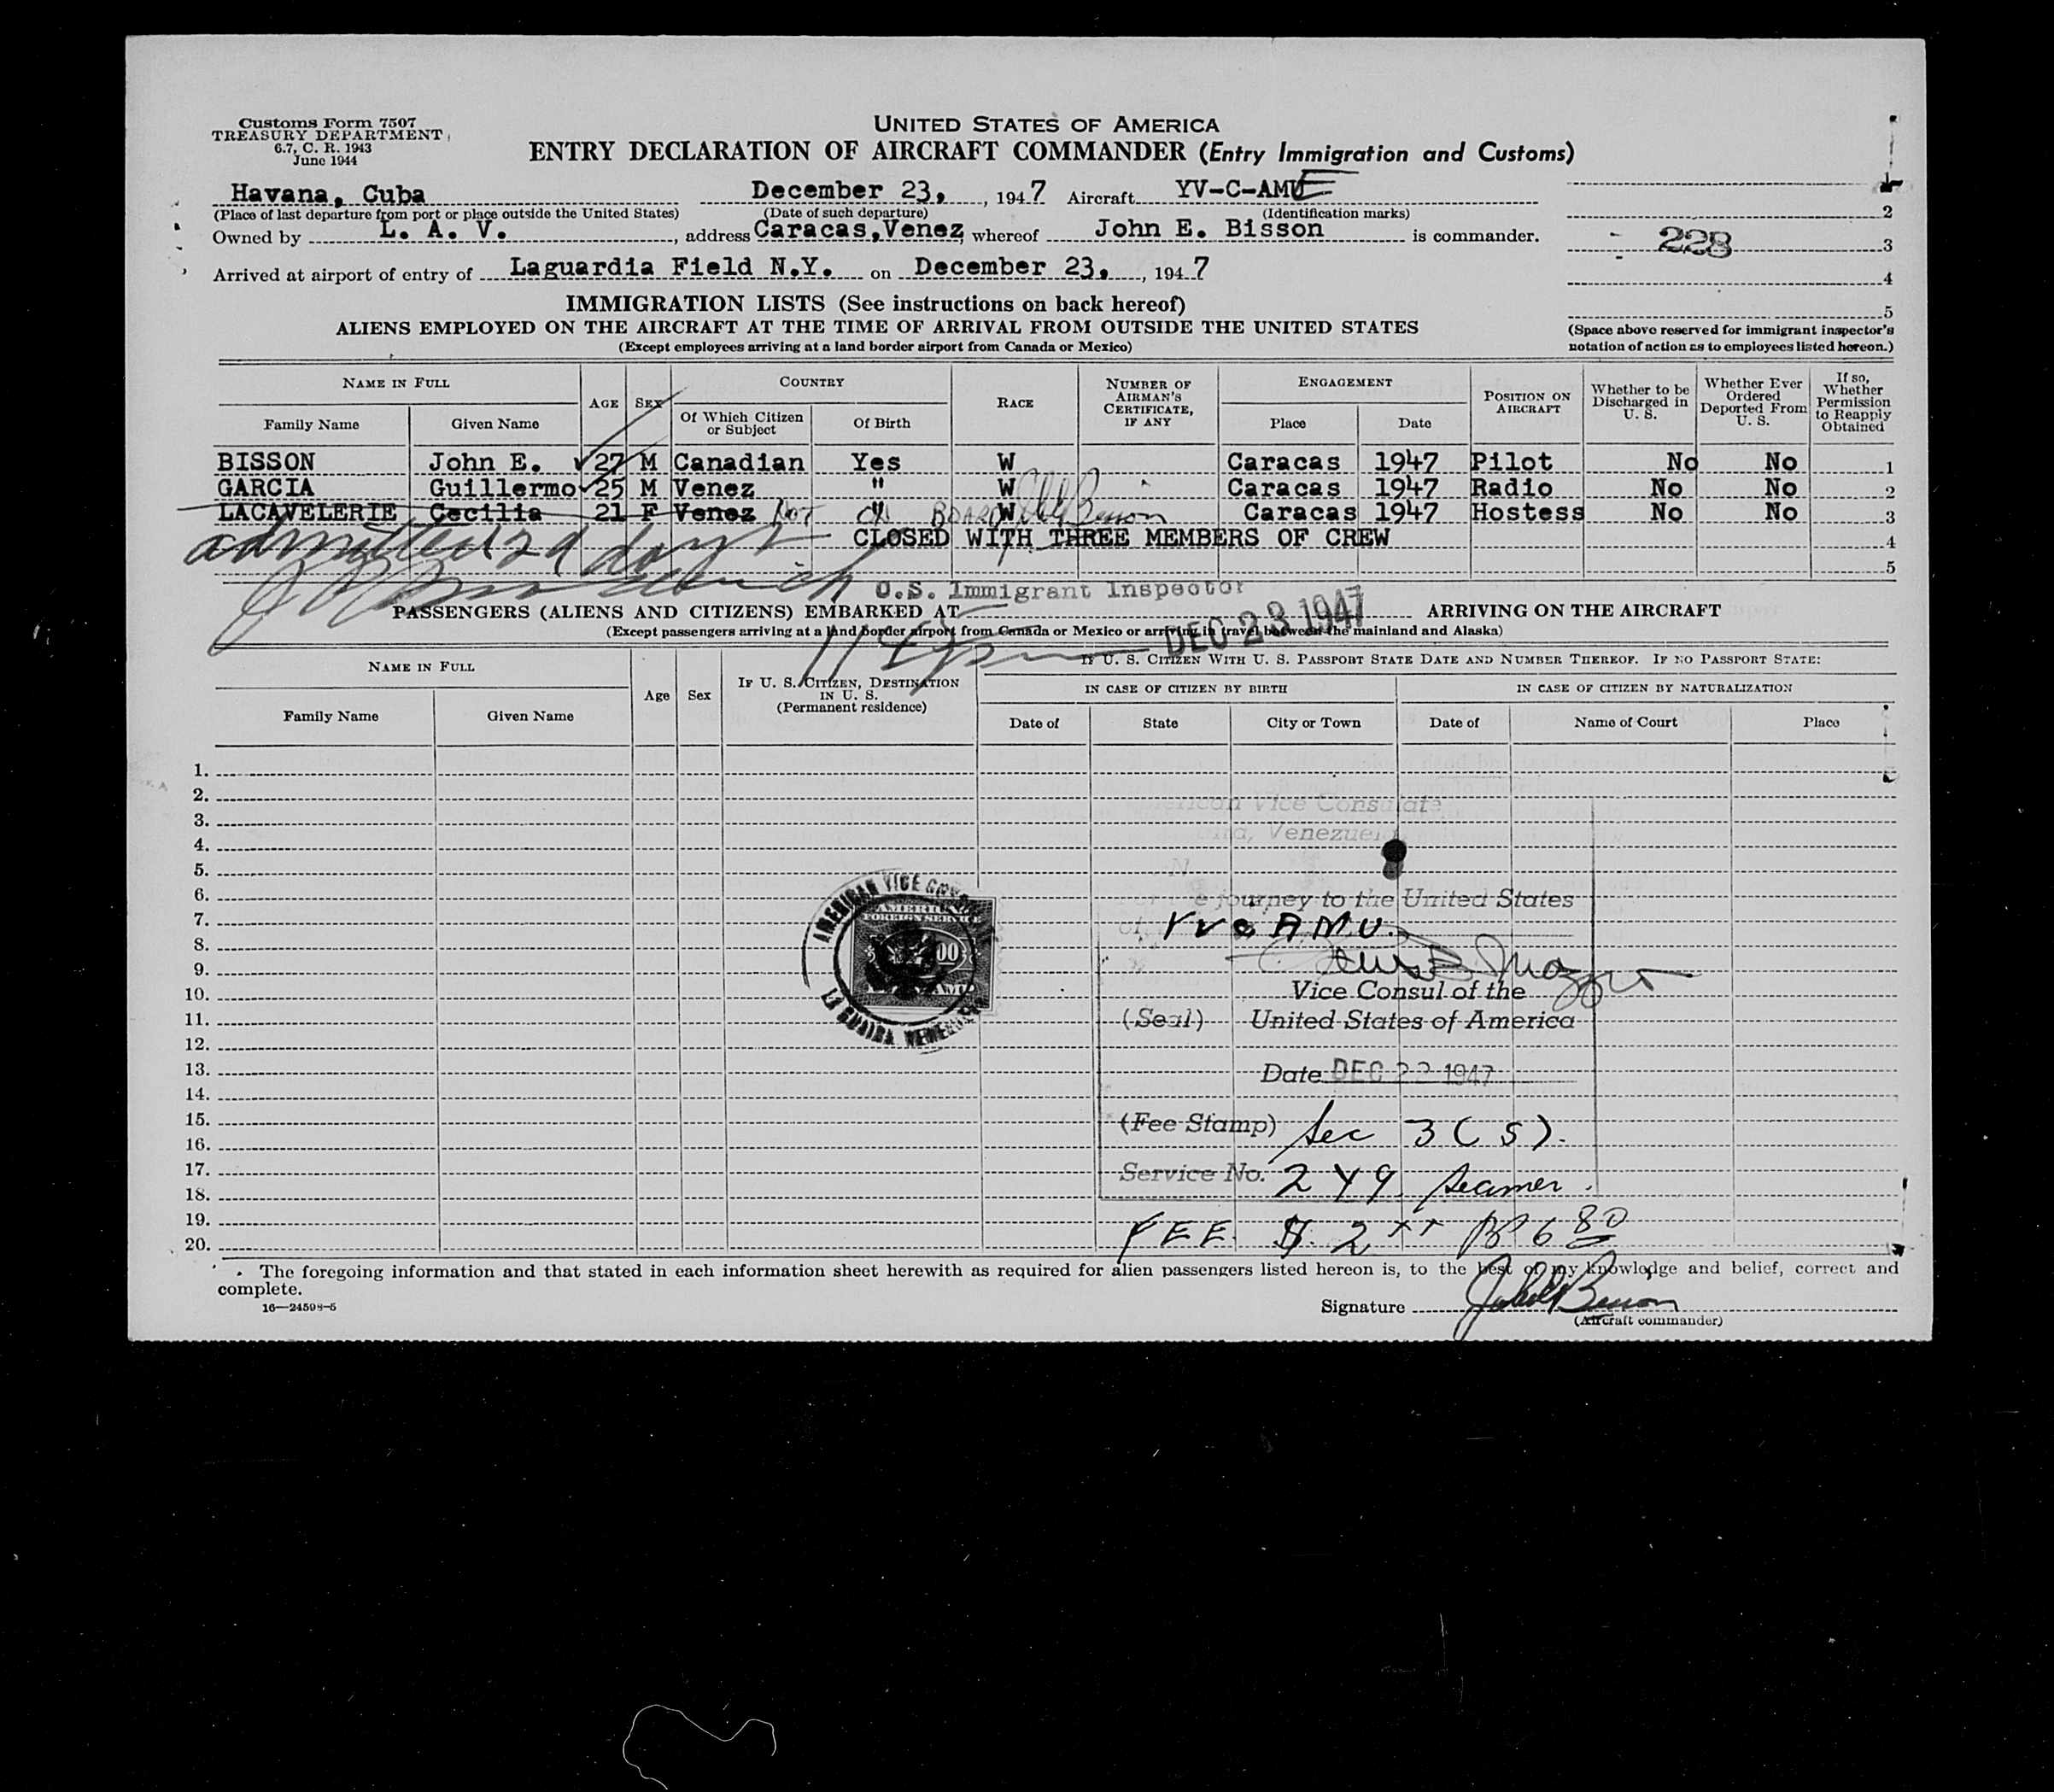 Customs Form 7507
TREASURY DEPARTMENT
6.7, C. R. 1943
June 1944
UNITED STATES OF AMERICA
ENTRY DECLARATION OF AIRCRAFT COMMANDER (Entry Immigration and Customs)
Havana, Cuba December 23, , 1947 Aircraft YV-C-AMU
(Place of last departure from port or place outside the United States) (Date of such departure) (Identification marks)
Owned by L. A. V. , address Caracas,Venez whereof John E. Bisson is commander.
Arrived at airport of entry of Laguardia Field N.Y. on December 23, , 1947
1
2
228 3
4
5
(Space above reserved for immigrant inspector's notation of action as to employees listed hereon.)
IMMIGRATION LISTS (See instructions on back hereof)
ALIENS EMPLOYED ON THE AIRCRAFT AT THE TIME OF ARRIVAL FROM OUTSIDE THE UNITED STATES
(Except employees arriving at a land border airport from Canada or Mexico)
NAME IN FULL AGE SEX COUNTRY RACE NUMBER OF AIRMAN'S CERTIFICATE, IF ANY ENGAGEMENT POSITION ON AIRCRAFT Whether to be Discharged in U. S. Whether Ever Ordered Deported From U. S. If so, Whether Permission to Reapply Obtained
Family Name Given Name Of Which Citizen or Subject Of Birth Place Date
BISSON John E. 27 M Canadian Yes W Caracas 1947 Pilot No No 1
GARCIA Guillermo 25 M Venez " W Caracas 1947 Radio No No 2
LACAVELERIE Cecilia 21 F Venez Not on Board " W Caracas 1947 Hostess No No 3
admitted 29 days CLOSED WITH THREE MEMBERS OF CREW 4
5
U.S. Immigrant Inspector
PASSENGERS (ALIENS AND CITIZENS) EMBARKED AT DEC 23 1947 ARRIVING ON THE AIRCRAFT
(Except passengers arriving at a land border airport from Canada or Mexico or arriving in travel between the mainland and Alaska)
NAME IN FULL Age Sex IF U. S. CITIZEN, DESTINATION IN U. S. (Permanent residence) IF U. S. CITIZEN WITH U. S. PASSPORT STATE DATE AND NUMBER THEREOF. IF NO PASSPORT STATE:
IN CASE OF CITIZEN BY BIRTH IN CASE OF CITIZEN BY NATURALIZATION
Family Name Given Name Date of State City or Town Date of Name of Court Place
1.
2. American Vice Consulate
3.
4. Venezuela
5.
6. journey to the United States
7. YVC AMU.
8.
9.
10. Vice Consul of the
11. (Seal) United States of America
12.
13. Date DEC 22 1947
14.
15. (Fee Stamp) Sec 3(5).
16.
17. Service No. 249
18.
19. FEE $ 2
20.
AMERICAN VICE CONSULATE
AMERICAN
FOREIGN SERVICE
LA GUAIRA VENEZUELA
The foregoing information and that stated in each information sheet herewith as required for alien passengers listed hereon is, to the best of my knowledge and belief, correct and
complete.
16—24598-5
Signature John E Bisson
(Aircraft commander)